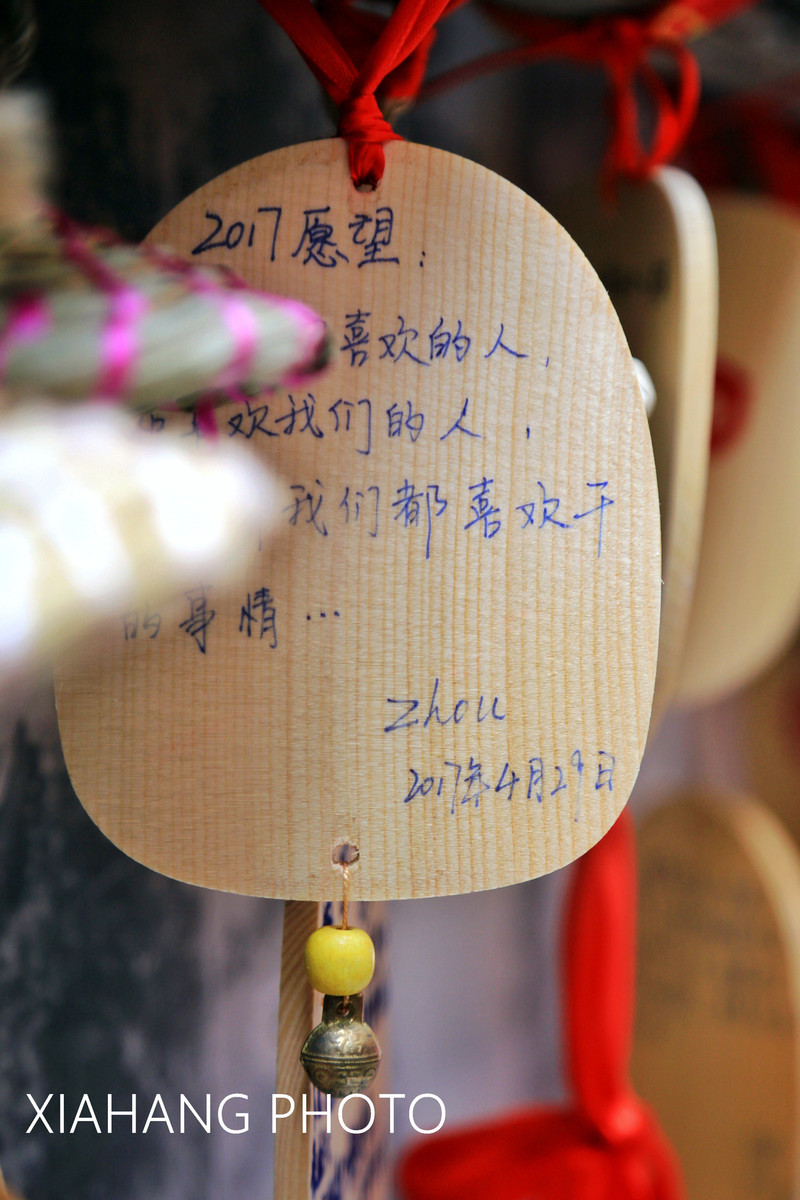 2017愿望：
喜欢的人，
欢我们的人，
我们都喜欢干
的事情…
Zhou
2017年4月29日
XIAHANG PHOTO